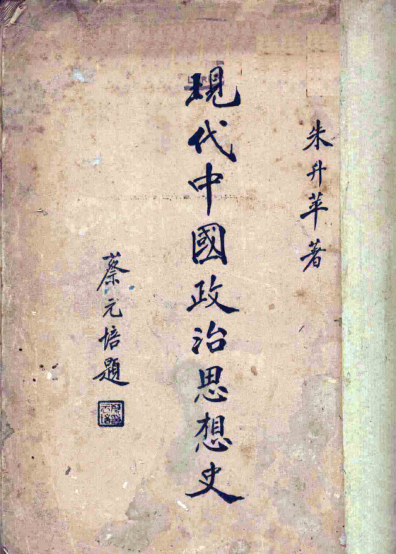 朱升苹著
現代中國政治思想史
蔡元培題